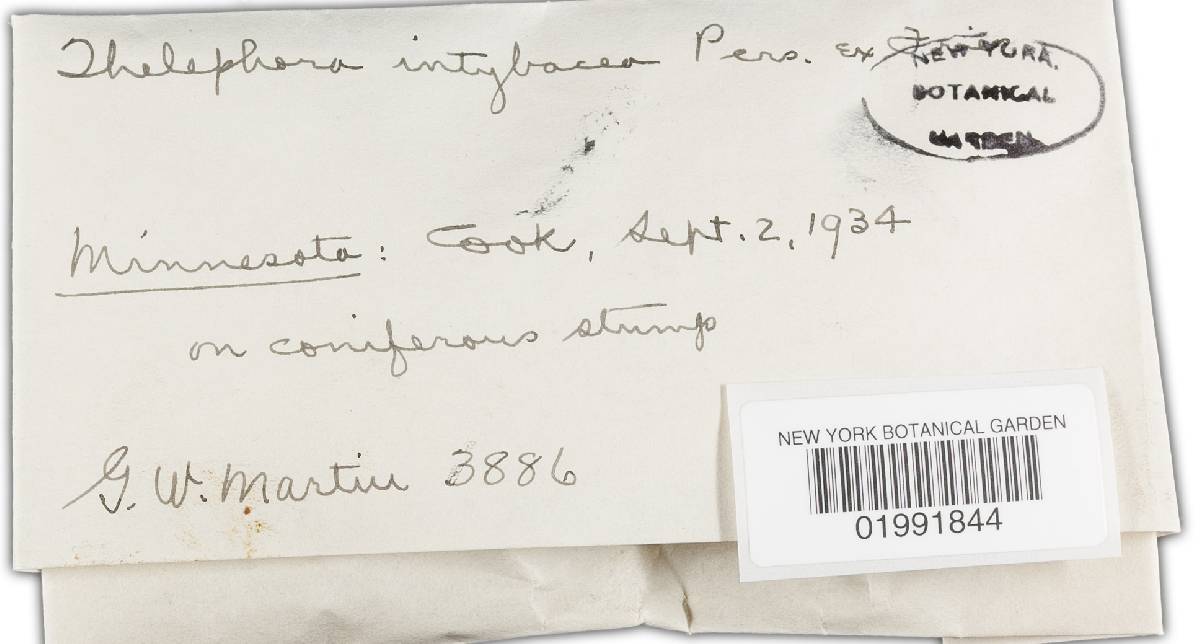 Thelephora intybacea Pers. ex Fries
NEW YORK
BOTANICAL
GARDEN
Minnesota: Cook, Sept. 2, 1934
on coniferous stump
G. W. Martin 3886
NEW YORK BOTANICAL GARDEN
01991844